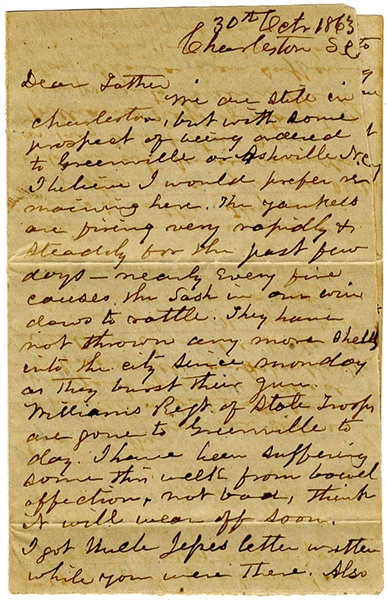 30th Oct 1863
Charleston SC
Dear Father
We are still in
charleston, but with some
prospect of being ordered
to Greenville or Ashville N.C.
I believe I would prefer re
maining here. The yankees
are firing very rapidly &
steadily for the past few
days — nearly every fire
causes the Sash in our win
dows to rattle. They have
not thrown any more shells
into the city since monday
as they burst their gun.
Williams Regt. of State Troops
are gone to Greenville to
day. I have been suffering
some this week from bowel
affection, not bad, think
it will wear off soon.
I got Uncle Jesses letter written
while you were there. Also